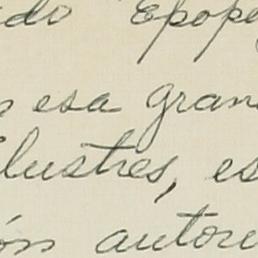 do Epope
esa gran
lustres, es
ón autori